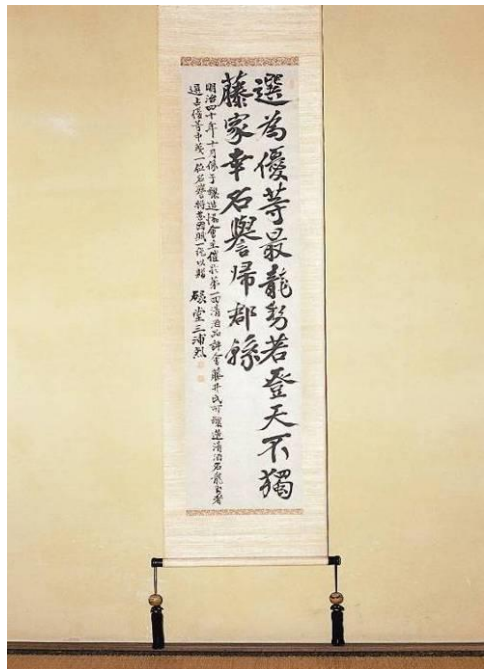 選為優等最龍勢若登天不獨
藤家幸名譽帰郡縣
明治四十年十月依于醸造協會主催於第一回清酒品評會藤井氏所醸造清酒名龍勢者
選占優等中第一位名譽賦一絶以贈 堂三浦